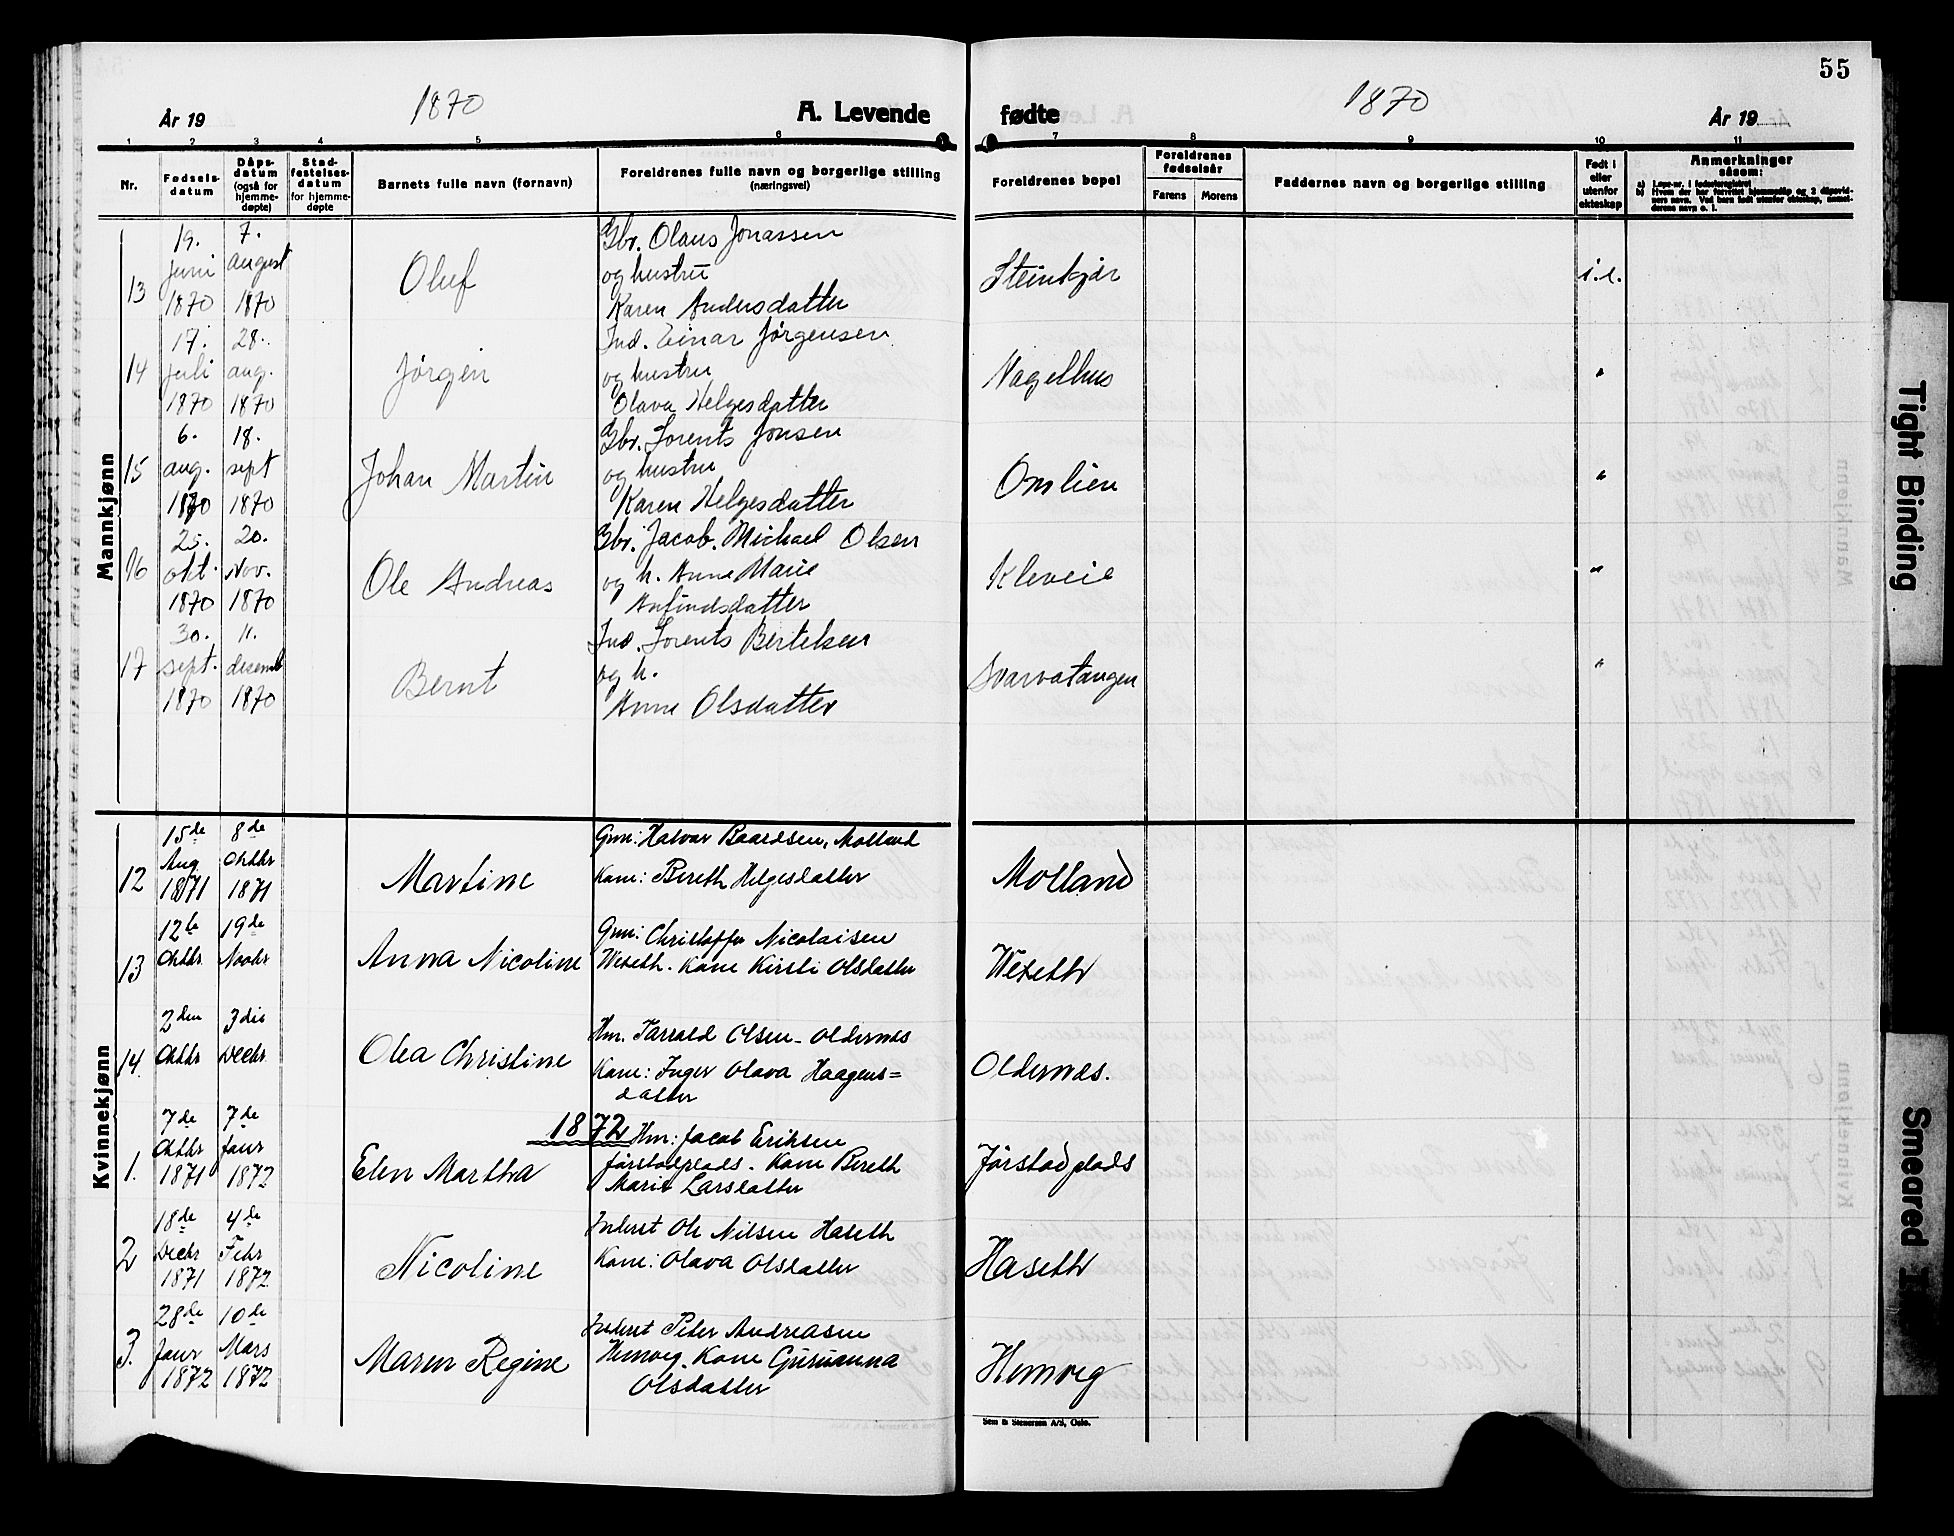 55
År 19
1870
A. Levende
fødte
1870
År 19
1 2 3 4 5 6 7 8 9 10 11
Nr.
Fødselsdatum
Dåpsdatum (også for hjemmedøpte)
Stadfestelsesdatum for hjemmedøpte
Barnets fulle navn (fornavn)
Foreldrenes fulle navn og borgerlige stilling (næringsvei)
Foreldrenes bopel
Foreldrenes fødselsår
Farens
Morens
Faddernes navn og borgerlige stilling
Født i eller utenfor ekteskap
Anmerkninger såsom:
Mannkjønn
13
19. juni 1870
7. august 1870
Oluf
Gbr. Olaus Jonassen
og hustru
Karen Andersdatter
Steinkjær
i.e.
14
17. juli 1870
28. aug. 1870
Jørgen
Ind. Einar Jørgensen
og hustru
Olava Helgesdatter
Nagelhus
"
15
6. aug. 1870
18. sept 1870
Johan Martin
Gbr. Lorents Jonsen
og hustru
Karen Helgesdatter
Omlien
"
16
25. okt. 1870
20. Nov. 1870
Ole Andreas
Gbr. Jacob. Michael Olsen
og h. Anne Marie
Anfindsdatter
Kleveie
"
17
30. sept. 1870
11. desemb 1870
Bernt
Ind. Lorents Bertelsen
og h.
Anne Olsdatter
Svarvatangen
"
Kvinnekjønn
12
15de Aug 1871
8de Oktbr 1871
Martine
Gmn: Halvor Baardsen, Molland
Kone: Bereth Helgesdatter
Molland
13
12te Oktbr
19de Novbr
Anna Nicoline
Gmn: Christoffer Nicolaisen
Weseth. Kone Kirsti Olsdatter
Weseth
14
2den Oktbr
3die Decbr
Olea Christine
Hm. Tarrald Olsen - Oldernæs
Kone: Inger Olava Haagens=
datter
Oldernæs.
1872
1.
7de Oktbr 1871
7de Janr 1872
Elen Martha
Hm: Jacob Eriksen
Jørstadplads. Kone Bereth
Marit Larsdatter
Jørstadplads
2
18de Decbr 1871
4de Febr 1872
Nicoline
Inderst Ole Nilsen Haseth
Kone: Olava Olsdatter
Haseth
3.
28de Janr 1872
10de Mars 1872
Maren Regine
Inderst Peter Andreasen
Hemveg. Kone Gurianna
Olsdatter
Hemveg
Sem & Stenersen A/S, Oslo.
Tight Binding
Smeared